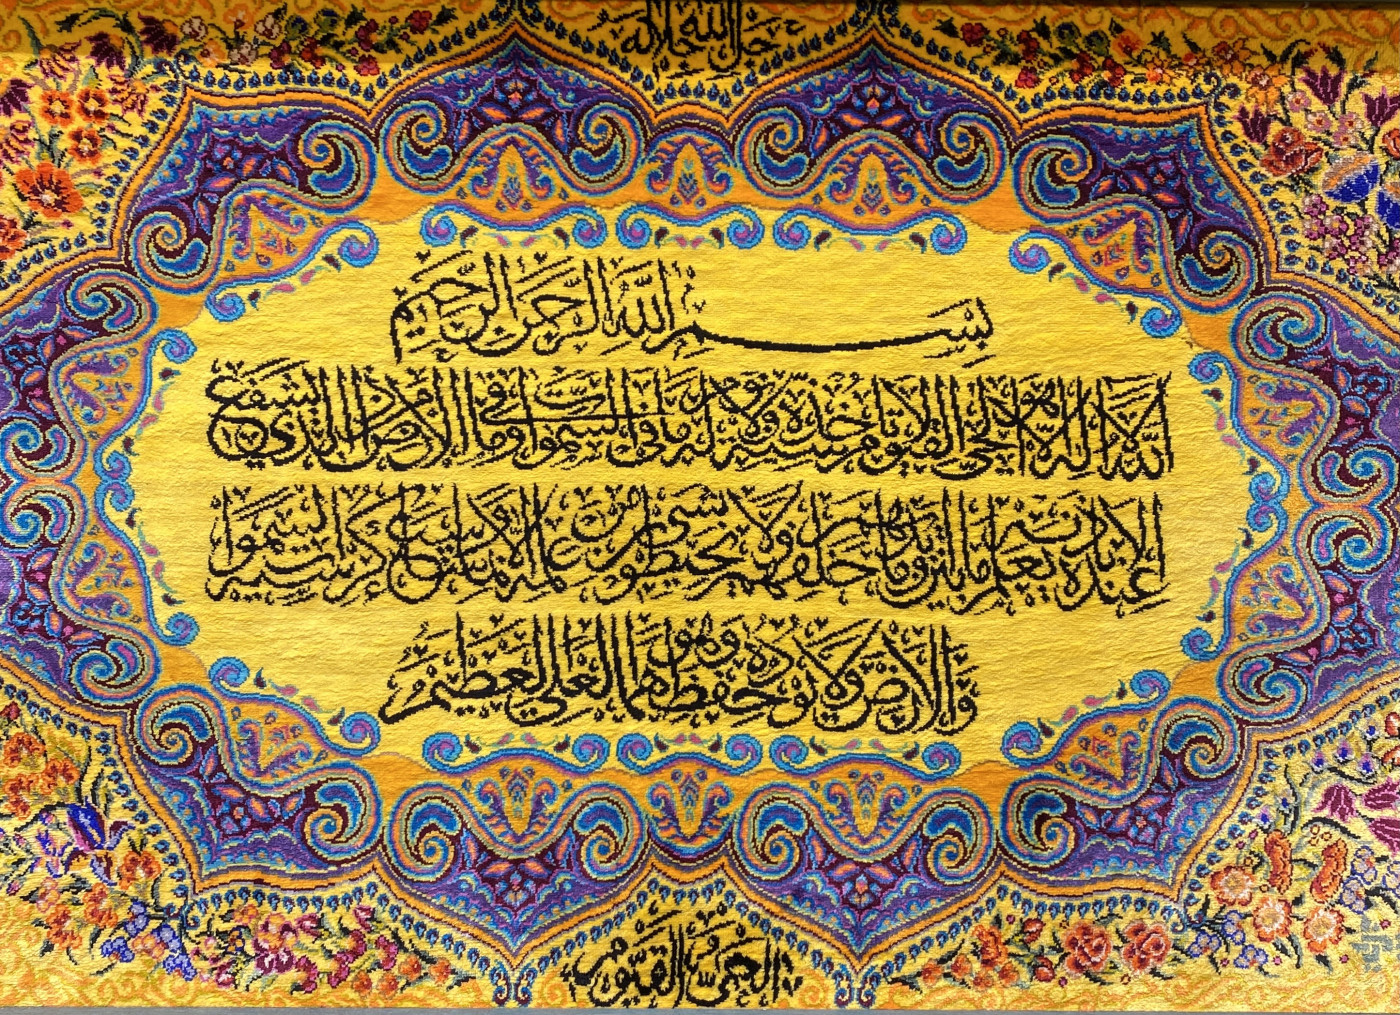 الله جل جلاله
بِسْمِ اللَّهِ الرَّحْمَنِ الرَّحِيمِ
اللَّهُ لَا إِلَهَ إِلَّا هُوَ الْحَيُّ الْقَيُّومُ لَا تَأْخُذُهُ سِنَةٌ وَلَا نَوْمٌ لَهُ مَا فِي السَّمَوَاتِ وَمَا فِي الْأَرْضِ مَنْ ذَا الَّذِي يَشْفَعُ
عِنْدَهُ إِلَّا بِإِذْنِهِ يَعْلَمُ مَا بَيْنَ أَيْدِيهِمْ وَمَا خَلْفَهُمْ وَلَا يُحِيطُونَ بِشَيْءٍ مِنْ عِلْمِهِ إِلَّا بِمَا شَاءَ وَسِعَ كُرْسِيُّهُ السَّمَوَاتِ
وَالْأَرْضَ وَلَا يَئُودُهُ حِفْظُهُمَا وَهُوَ الْعَلِيُّ الْعَظِيمُ
الحي القيوم